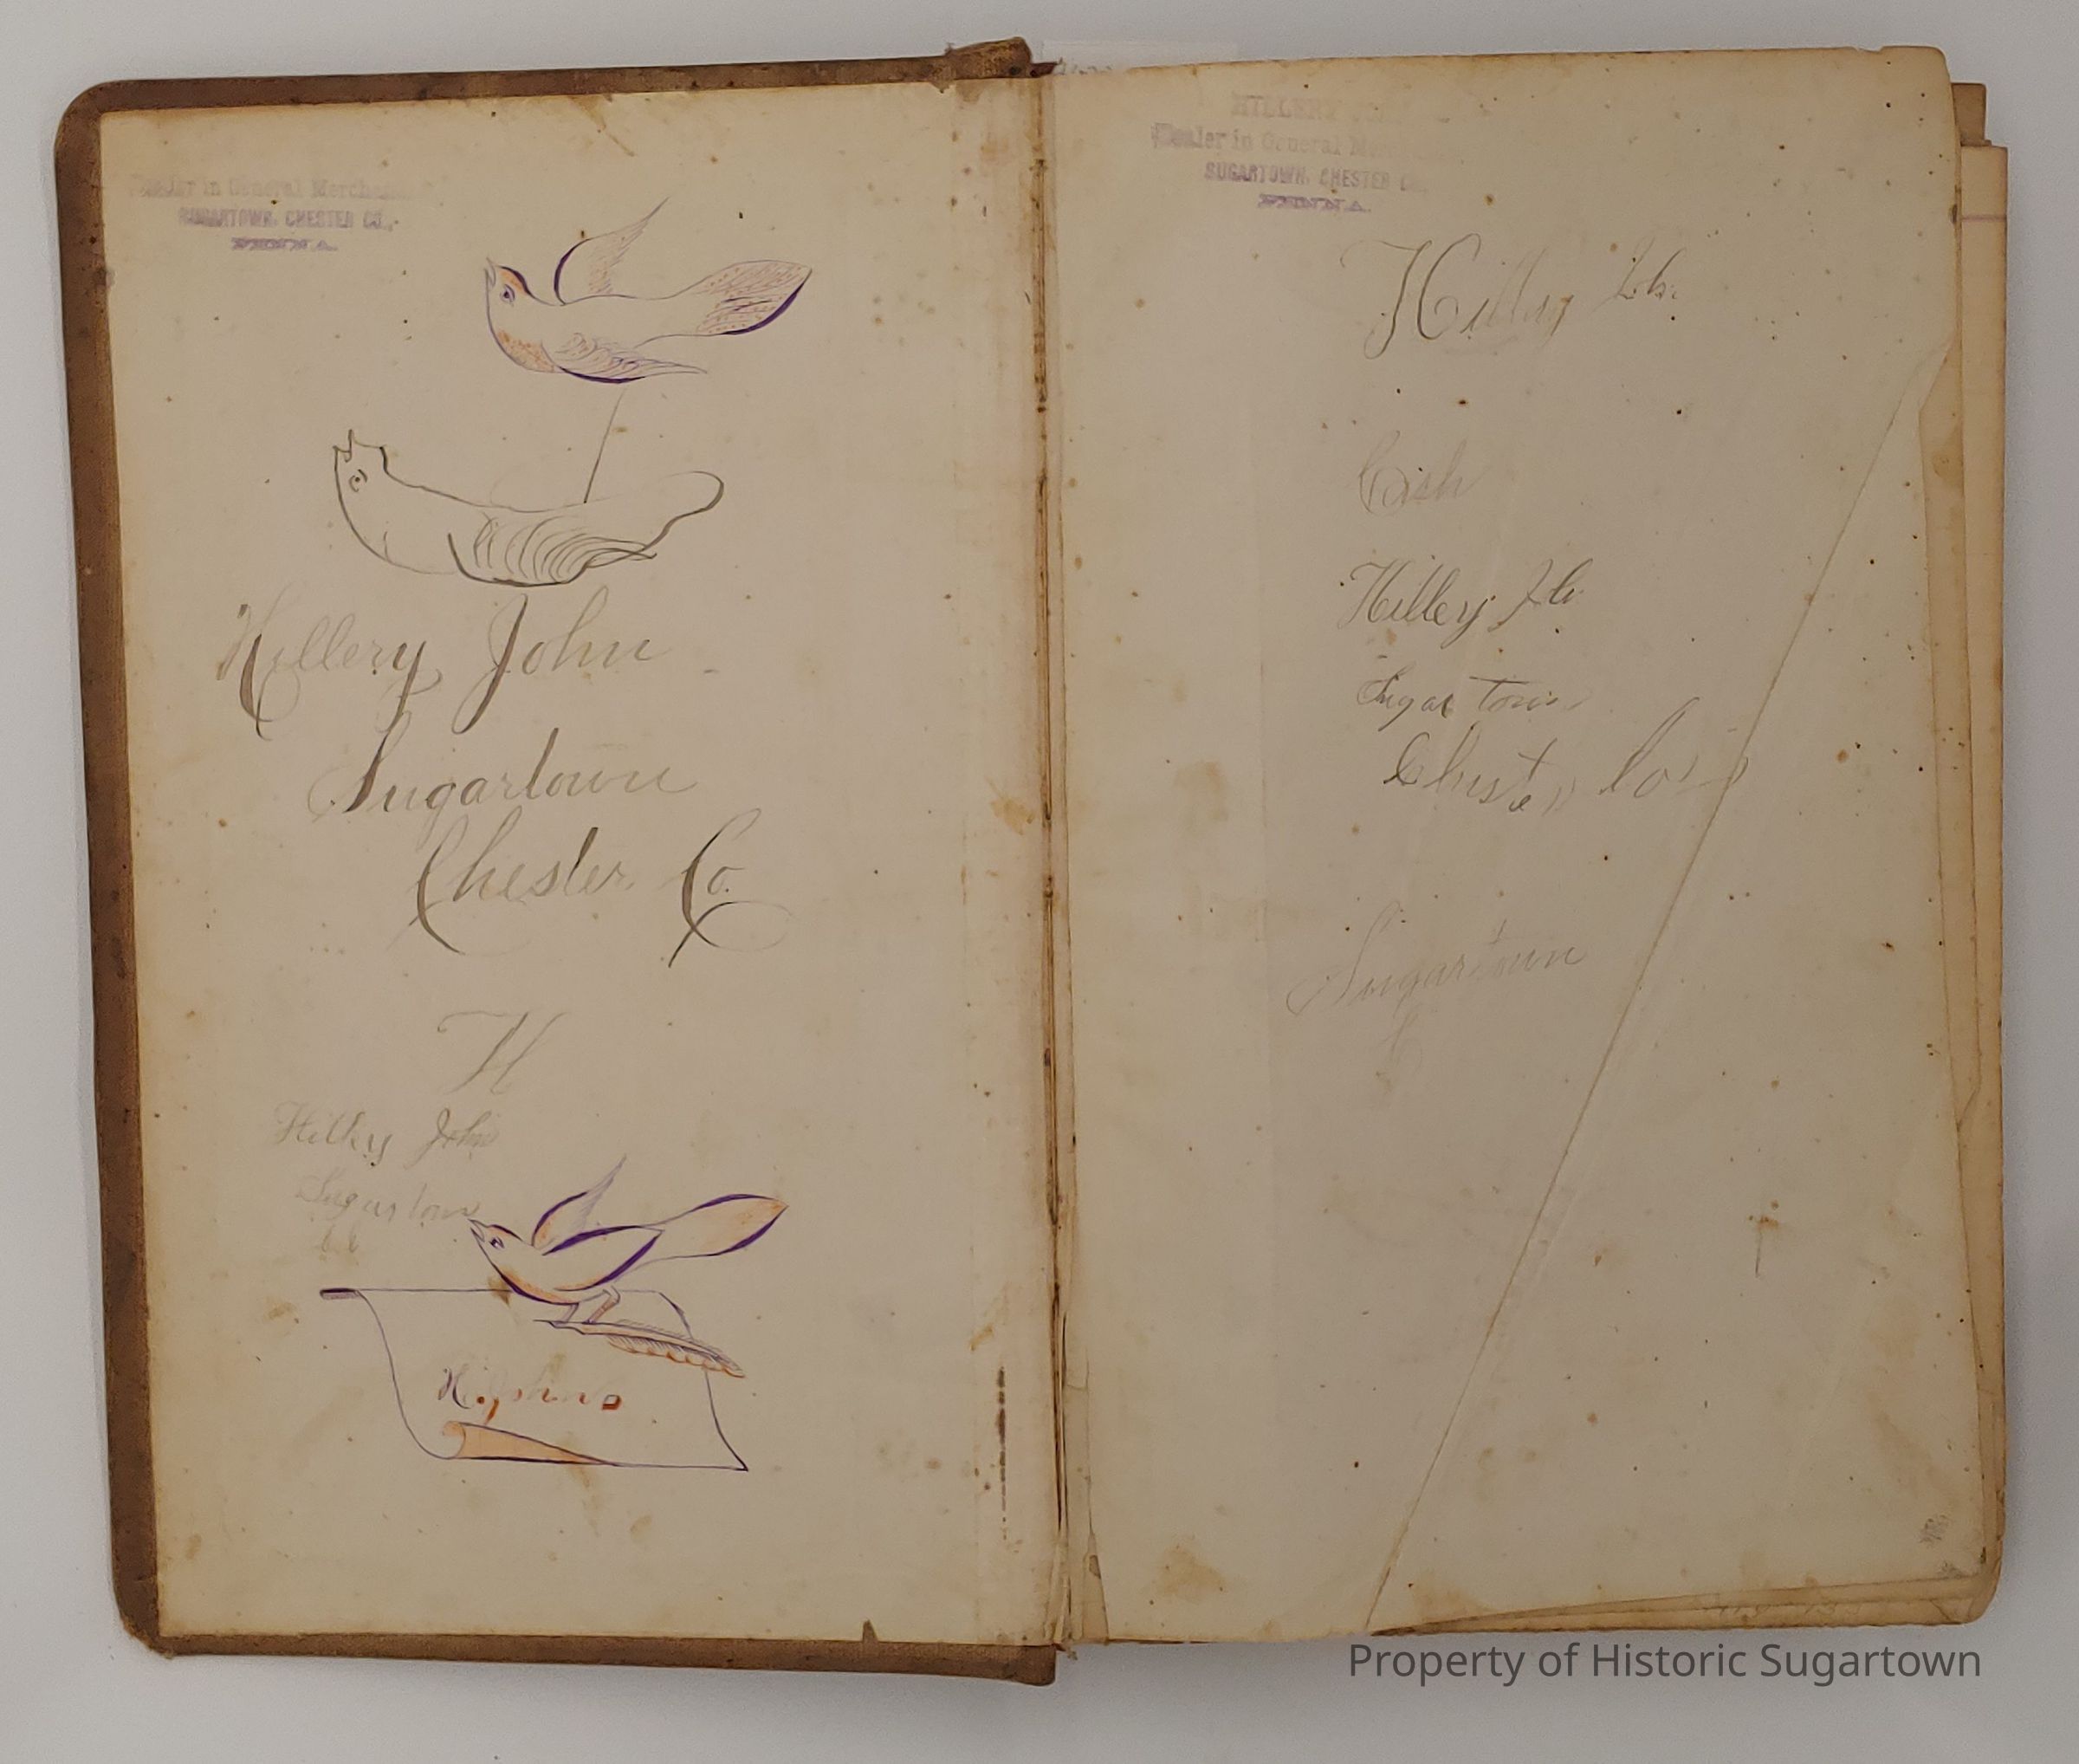 in General
SUGARTOWN, CHESTER CO.,
PENNA.
Hillery John
Sugartown
Chester Co.
H
Hillery John
Sugartown
HILLERY
Dealer in General
SUGARTOWN, CHESTER CO.,
PENNA.
Hillery Joh
Cash
Hillery
Sugartown
Chester Co
Sugartown
C
Property of Historic Sugartown